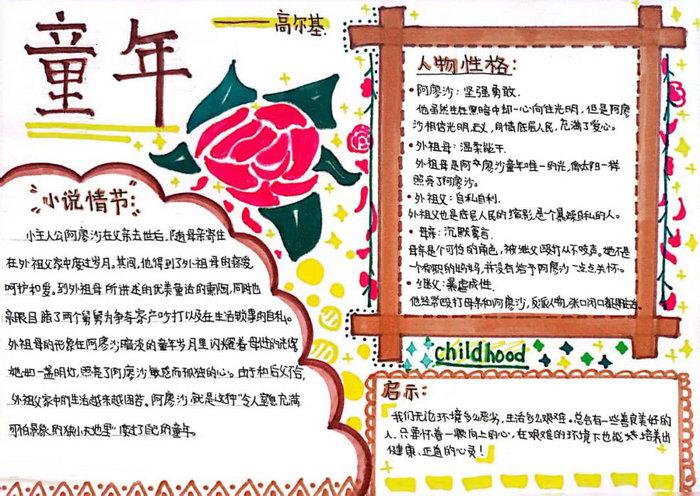 童年
——高尔基
小说情节:
小主人公阿廖沙在父亲去世后,随母亲寄住
在外祖父家中度过岁月。其间,他得到了外祖母的疼爱
呵护和爱。到外祖母所讲述的优美童话的熏陶,同时也
亲眼目睹了两个舅舅为争夺家产吵打以及在生活琐事内自私。
外祖母的形象在阿廖沙暗淡的童年岁月里闪耀着母性的光辉
她如一盏明灯,照亮了阿廖沙敏感而孤独的心。由于和后父不合,
外祖父家中的生活越来越困苦。阿廖沙就是这种"令人窒息充满
可怕景象的狭小天地里"度过了自己的童年。
人物性格:
•阿廖沙:坚强勇敢.
他虽然生在黑暗中却一心向往光明,但是阿廖
沙相信光明,正义,同情底层人民,充满了爱心。
•外祖母:温柔能干.
外祖母是阿廖沙童年唯一的光,像太阳一样
照亮了阿廖沙。
•外祖父:自私自利.
外祖父也是底层人民的缩影,是个暴躁自私的人。
•母亲:沉默寡言.
母亲是个可怜的角色,被继父殴打从不吱声。她不是
一个称职的妈妈,并没有给予阿廖沙一点点关怀。
•继父:暴虐成性.
他经常殴打母亲和阿廖沙,
childhood
启示:
我们无论环境多么恶劣,生活多么艰难。总会有一些善良美好的
人,只要怀着一颗向上的心,在艰难的环境下也能培养出
健康、正直的心灵!